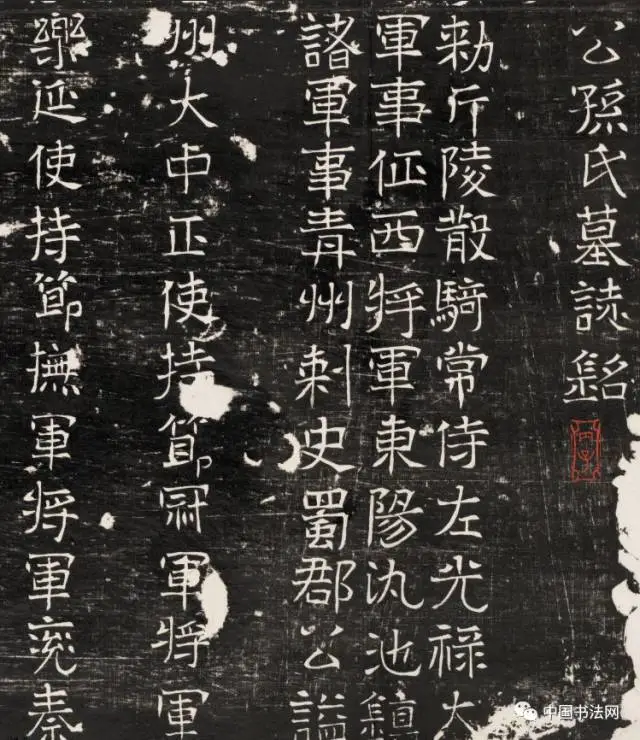 公孫氏墓誌銘
勑斤陵散騎常侍左光祿大
軍事征西將軍東陽汍池鎮
諸軍事青州刺史蜀郡公謚
州大中正使持節冠軍將軍
樂延使持節撫軍將軍兗秦
中国书法网